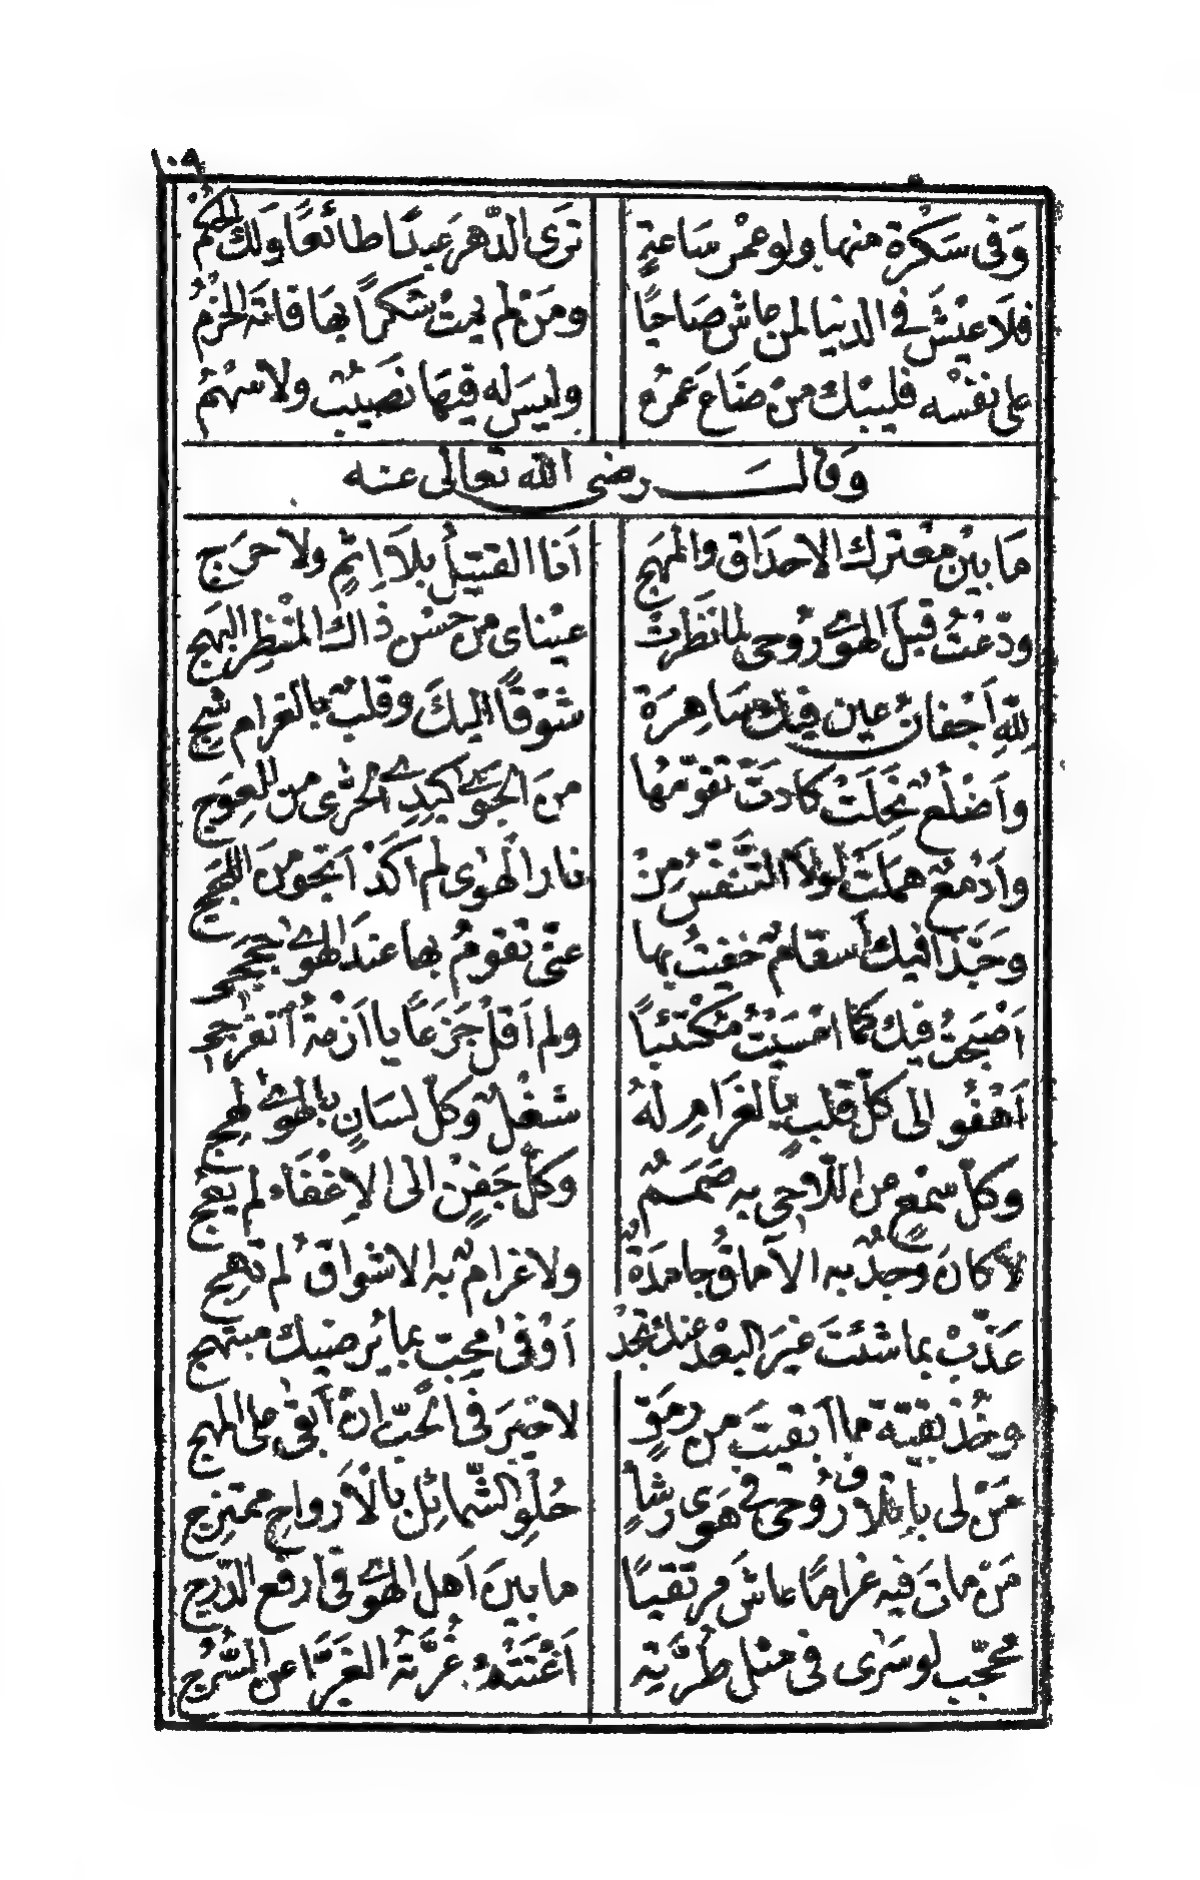 ١٠٩
وَفِى سَكْرَةٍ منها ولو عمْرَ سَاعةٍ تَرَى الدّهرَ عبدًا طائعًا وَلكَ الحكمُ
فلَا عيْشَ فى الدنيا لمن عاشَ صَاحيًا ومَن لم يمتْ سُكرًا بهَا فاتَهُ الحزمُ
على نفسْه فليبك منْ ضَاعَ عَمرُه وليسَ له فيهَا نصَيبٌ ولا سَهْمُ
وَقالــــ رضى الله تعالى عنه
مَا بيْن معْترك الاحدَاق والمُهَج اَنا القتيلُ بلَا اثمٍ ولا حرَج
ودّعتُ قبلَ الهوى رُوحى لما نَظرتْ عيْناى من حسْن ذاك المنْظر البَهج
للّهِ اَجْفانُ عين فيك سَاهِرَةً شَوْقًا اليكَ وقلبٌ بالغرام شجِ
واَضْلُعٌ نَحِلَتْ كادَتْ تقوّمُها منَ الجَوى كبدِى الحرّى من العِوَج
واَدْمعٌ هَمَلَتْ لَولَا التّنفّسُ مِنْ نار الهوَى لم اَكدْ انجو منَ اللّججِ
وَحَبّذا فيك اَسقامٌ خفيتُ بها عنّى تقومُ بها عندَ الهوى حججى
اَصْبَحتُ فيك كما امْسَيْتُ مُكتئبًا ولم اَقُلْ جَزَعًا يا اَزمةُ انفرجى
اَهْفُو الى كلّ قلبٍ بالغرَامِ لهُ شغْلٌ وكلّ لسَانٍ بالهوى لهجِ
وكلّ سمْعٍ عن اللّاحى به صَمَمٌ وكلّ جَفْنٍ الى الاِغْفَاءِ لم يعُج
لا كانَ وجدٌ به الآماقُ جامدَةٌ ولا غرامٌ به الاشواقُ لم تَهِج
عَذّبْ بما شئتَ غيرَ البُعْد عنك تجدْ اَوْفى محبٍّ بما يُرضيك مبتهج
وخُذْ بقيّةَ ما ابقيتَ من رمَقٍ لا خيرَ فى الحبّ ان اَبقى على المهج
مَنْ لى باِتلاف رُوحى فى هَوى رشاٍ حُلو الشّمائلِ بالاَرواح ممتزج
مَنْ ماتَ فيه غرامًا عاشَ مرتقيًا ما بينَ اَهل الهوى فى ارفع الدّرج
محُجّب لو سَرى فى مثل طُرّته اَغْنَتْهُ غُرّتهُ الغَرّا عن السّرج